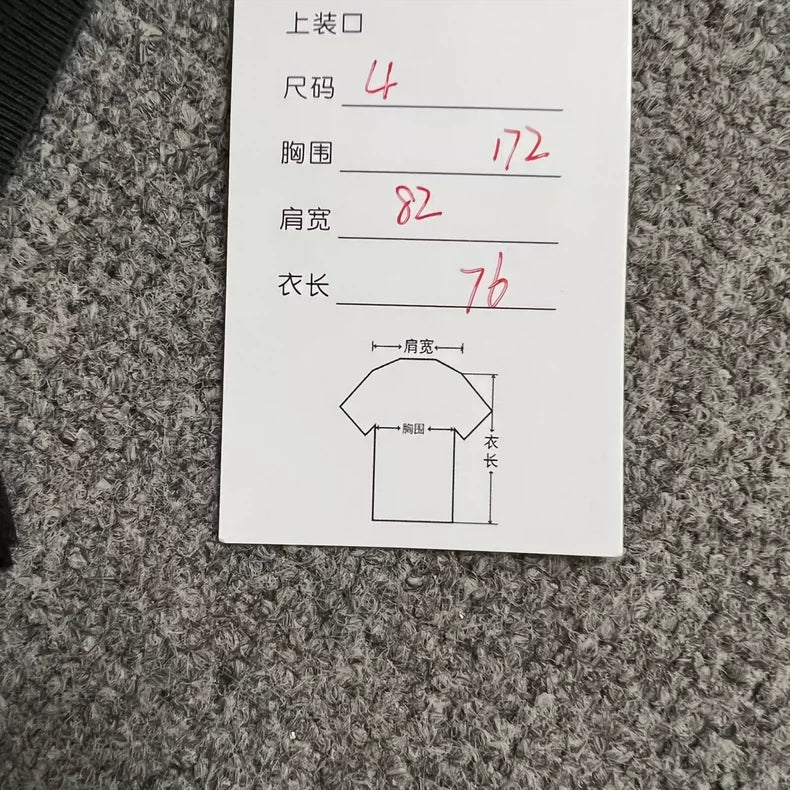 上装口
尺码 4
胸围 172
肩宽 82
衣长 76
肩宽
胸围
衣长